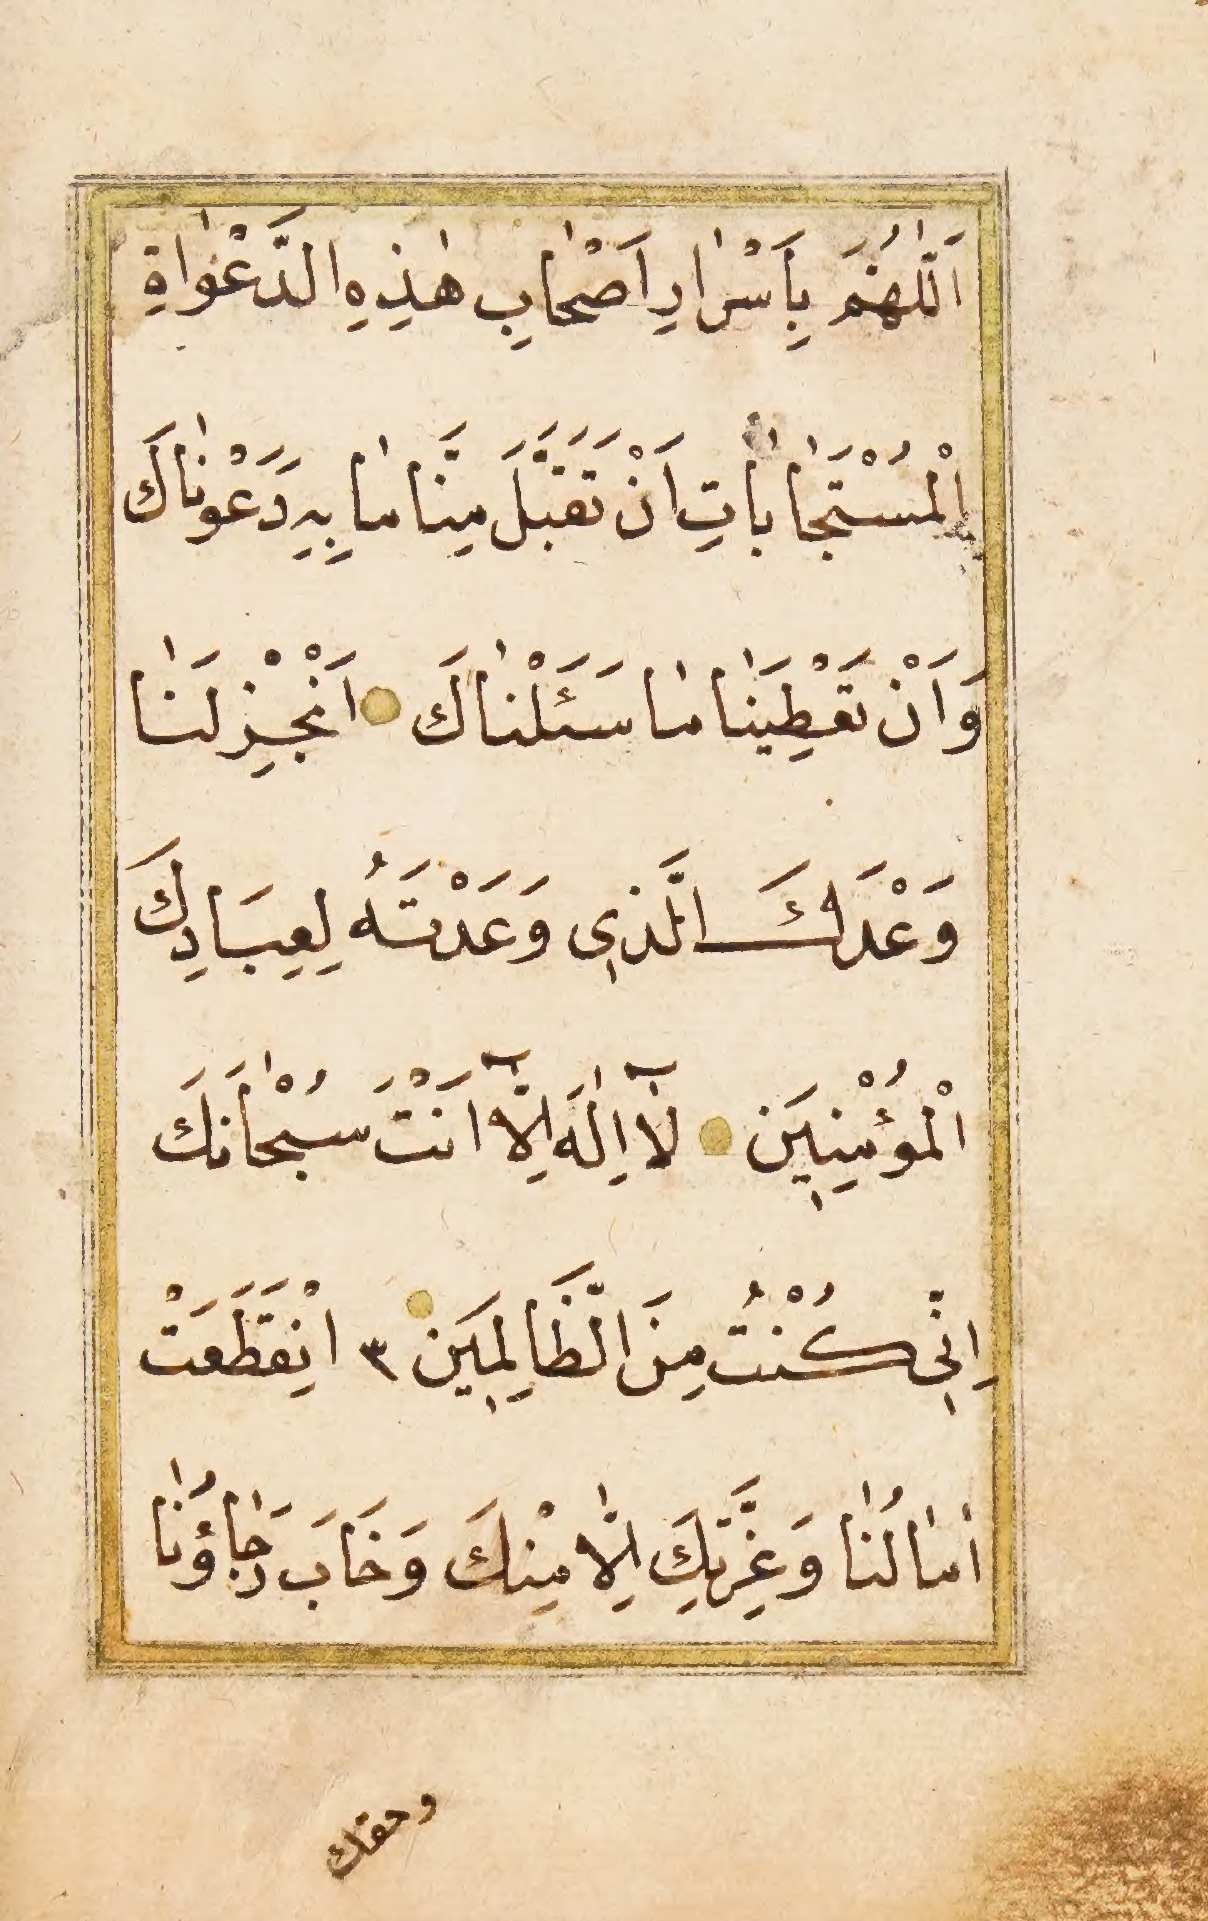 اَللّٰهُمَّ بِاَسْرٰارِ اَصْحٰابِ هٰذِهِ الدَّعْوٰاةِ
الْمُسْتَجٰابٰاتِ اَنْ تَقَبَّلَ مِنَّا مٰا بِهِ دَعَوْنٰاكَ
وَاَنْ تَعْطِيَنٰا مٰا سَئَلْنٰاكَ اَنْجِزْ لَنٰا
وَعْدَكَ الَّذٖى وَعَدْتَهُ لِعِبَادِكَ
الْمُؤْمِنٖينَ لَآ اِلٰهَ اِلَّآ اَنْتَ سُبْحٰانَكَ
اِنّٖى كُنْتُ مِنَ الظَّالِمٖينَ ٣ انْقَطَعَتْ
اٰمٰالُنٰا وَعِزَّتِكَ اِلّٰا مِنْكَ وَخَابَ رَجٰاؤُنٰا
وحقك